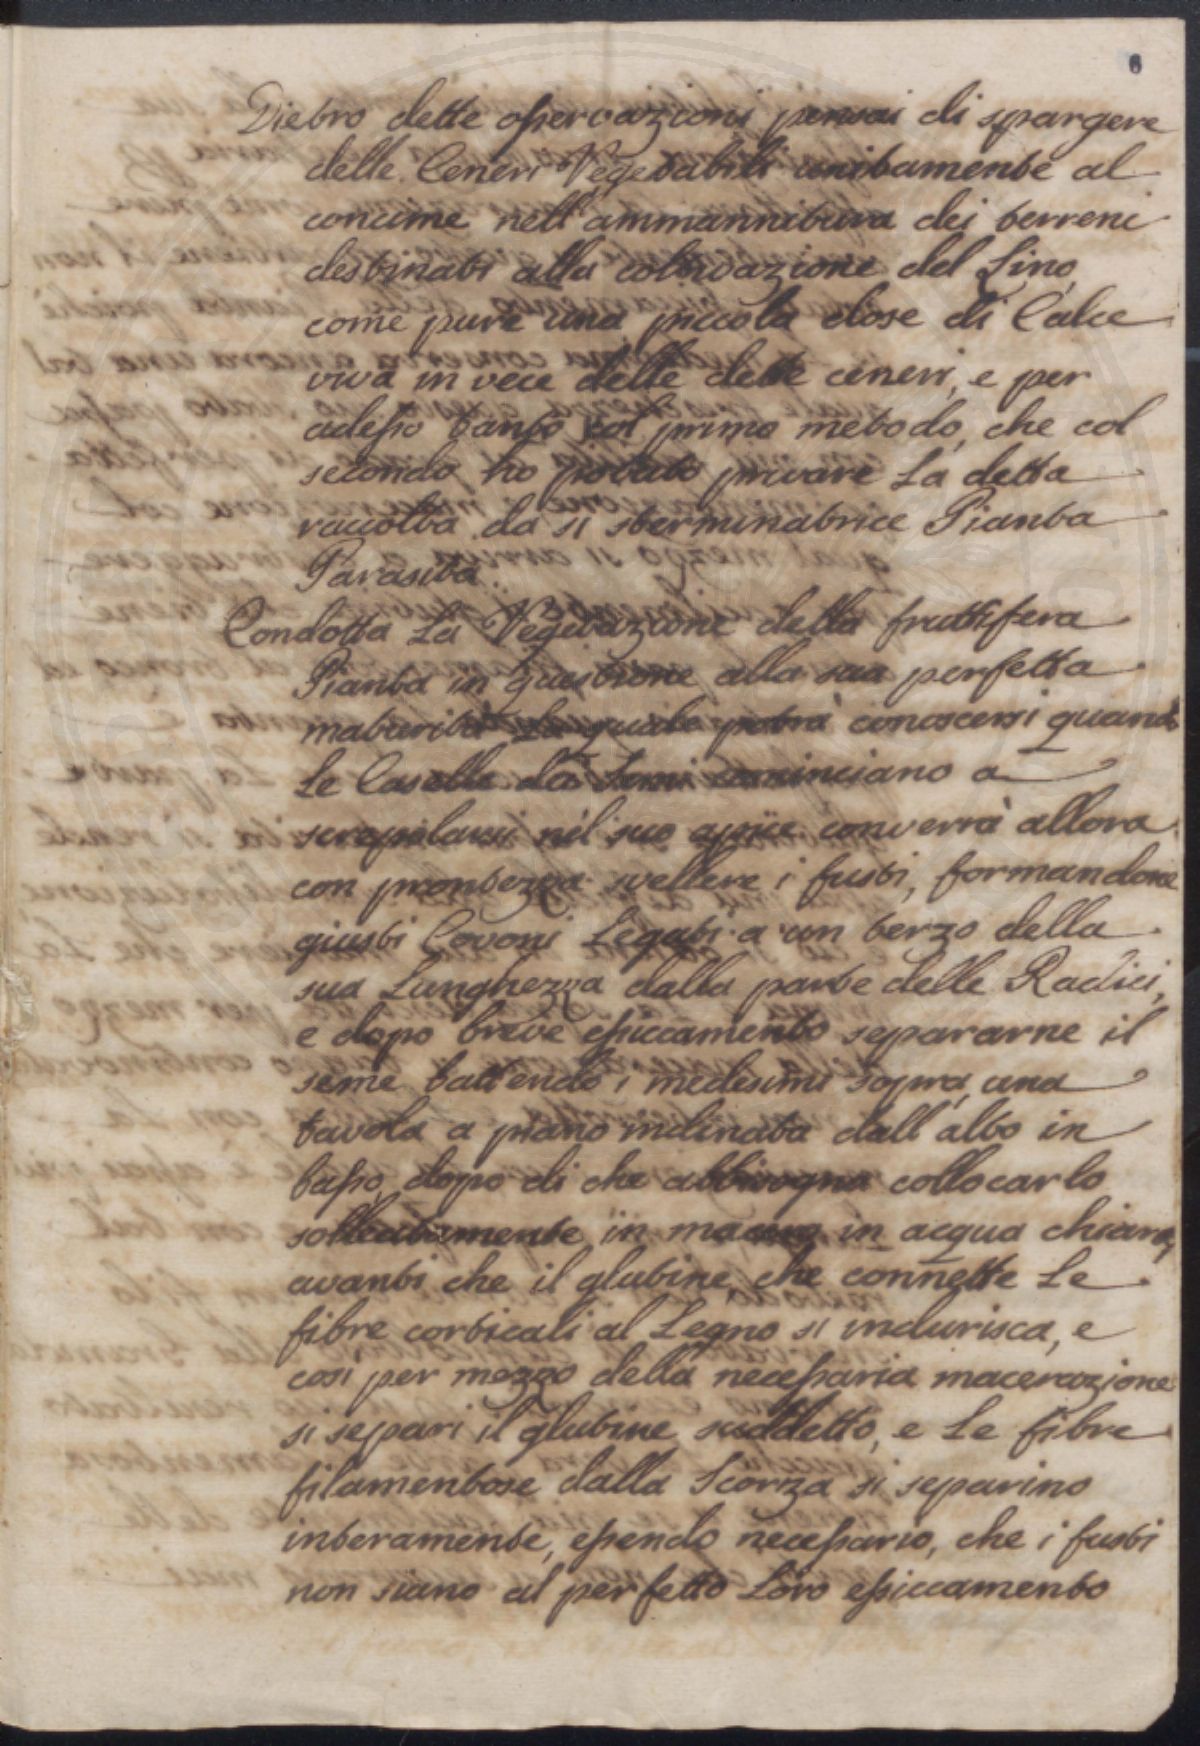 6
Dietro dette osservazioni pensai di spargere
delle Ceneri Vegetabili unitamente al
concime nell'ammannitura dei terreni
destinati alla coltivazione del Lino,
come pure una piccola dose di Calce
viva in vece delle dette ceneri, e per
adesso tanto col primo metodo, che col
secondo ho potuto privare La detta
raccolta da si sterminatrice Pianta
Parasita.
Condotta La Vegetazione della fruttifera
Pianta in questione alla sua perfetta
maturità La quale potrà conoscersi quando
Le Caselle dei Semi cominciano a
screpolarsi nel suo apice converrà allora
con prontezza svellere i fusti, formandone
giusti Covoni Legati a un terzo della
sua Lunghezza dalla parte delle Radici,
e dopo breve essiccamento separarne il
seme battendo i medesimi sopra una
tavola a piano inclinata dall'alto in
basso, dopo di che abbisogna collocarlo
sollecitamente in macero in acqua chiara,
avanti che il glutine, che connette Le
fibre corticali al Legno si indurisca, e
così per mezzo della necessaria macerazione
si separi il glutine suddetto, e Le fibre
filamentose dalla Scorza si separino
interamente, essendo necessario, che i fusti
non siano al perfetto Loro essiccamento